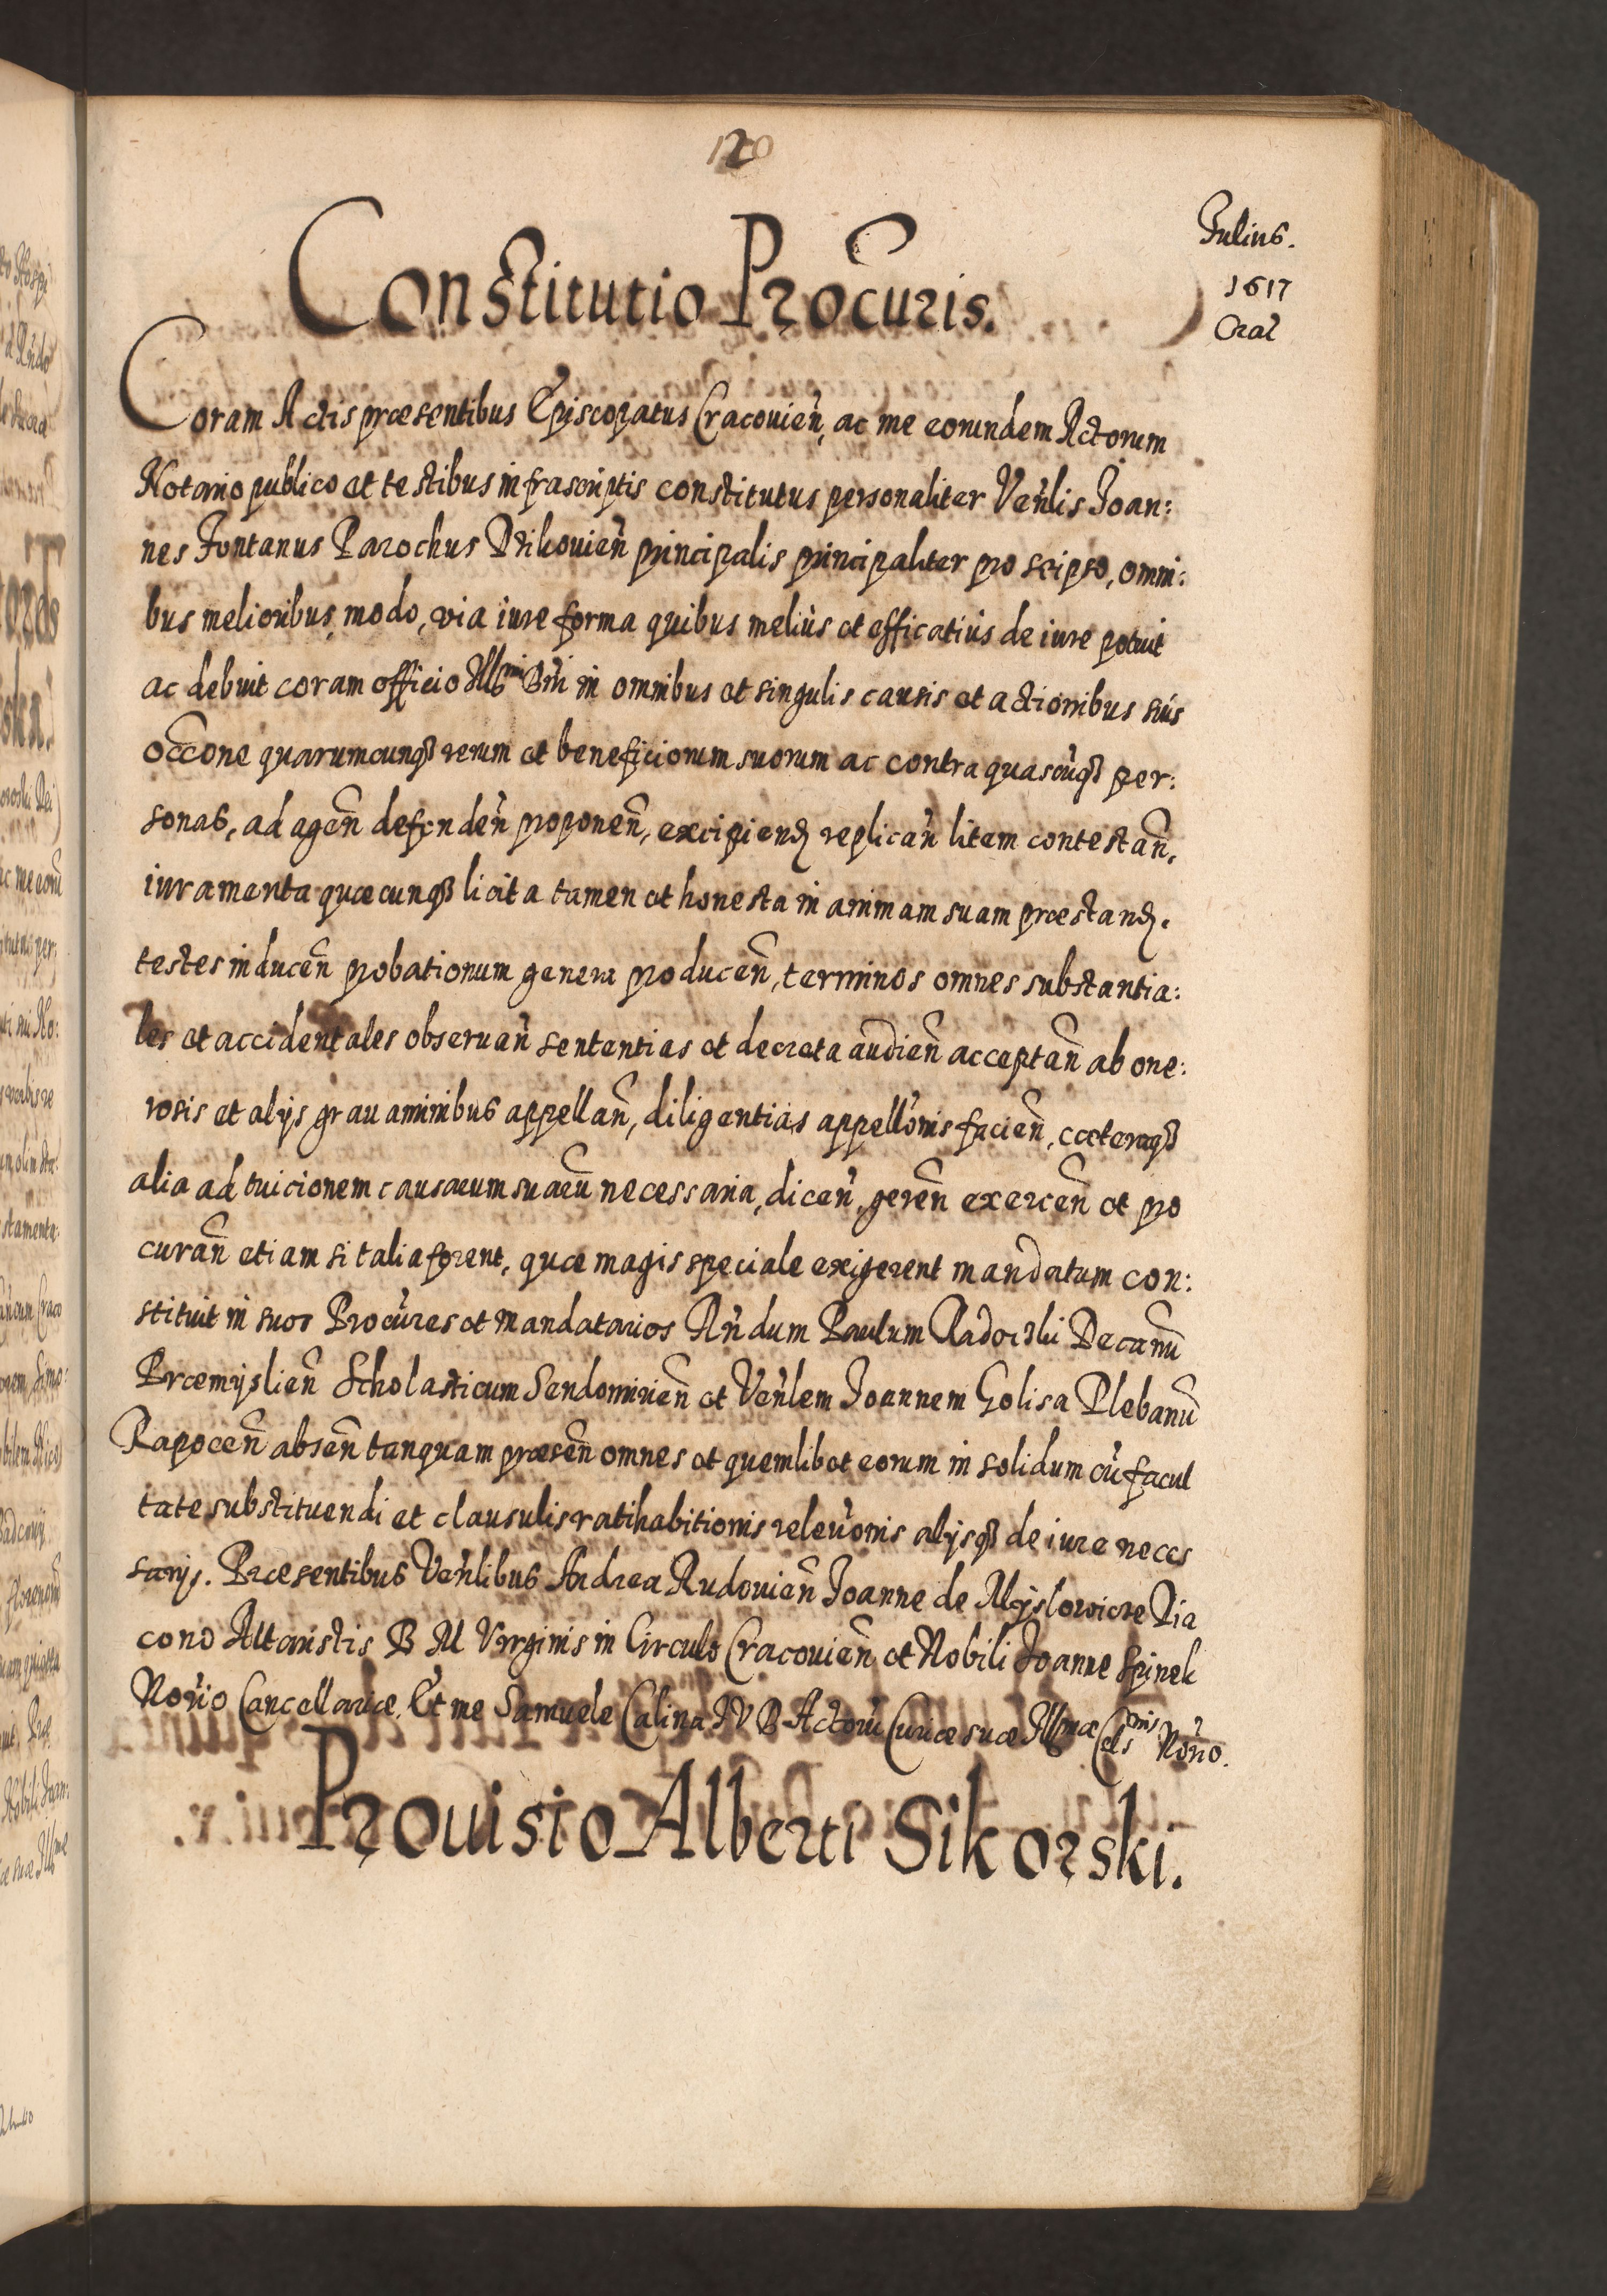 Constitutio Procuris.
Julius.
1617
Crac̃
Coram Actis præsentibus Episcopatus Cracovień, ac me eorundem Actorum
Notario publico et testibus infrascriptis constitutus personaliter Veñlis Joan:
nes Fontanus Parochus principalis principaliter pro seipso, omni:
bus melioribus, modo, via iure forma quibus meliùs et efficatiùs de iure potuit
ac debuit coram officio Illsmi Dñi in omnibus et singulis causis et actionibus suis
occ̃one quarumcunqȝ rerum et beneficiorum suorum ac contra quascũqȝ per:
sonas, ad ageñ defendeñ proponeñ, excipiendȝ replicañ litem contestañ,
iuramenta quæcunqȝ licita tamen et honesta in animam suam præstandȝ.
testes induceñ probationum genera produceñ, terminos omnes substantia:
les et accidentales observañ sententias et decreta audieñ acceptañ ab one:
rosis et alijs gravaminibus appellañ, diligentias appellõnis facieñ, cæteraqȝ
alia ad tuicionem causarum suarũ necessaria, diceñ, gereñ exerceñ et pro
curañ etiam si talia forent, quæ magis speciale exigerent mandatum con:
stituit in suos Procũres et mandatarios Rñdum Paulum Radoszki Decanũ
Præmyslieñ Scholasticum Sendomirieñ et Veñlem Joannem Golisa Plebanũ
Rapoceñ abseñ tanquam præseñ omnes et quemlibet eorum in solidum cũ facul
tate substituendi et clausulis ratihabitionis relevõnis alijsqȝ de iure neces
sarijs. Præsentibus Veñlibus Andrea Rudovieñ Joanne de Myslowicze Dia
cono Altaristis B M Virginis in Circulo Cracovieñ et Nobili Joanne Spinek
Norĩo Cancellariæ. Et me Samuele Calina IVD Actorũ Curiæ suæ Illsmæ Celsnis Norĩo.
Provisio Alberti Sikorski.